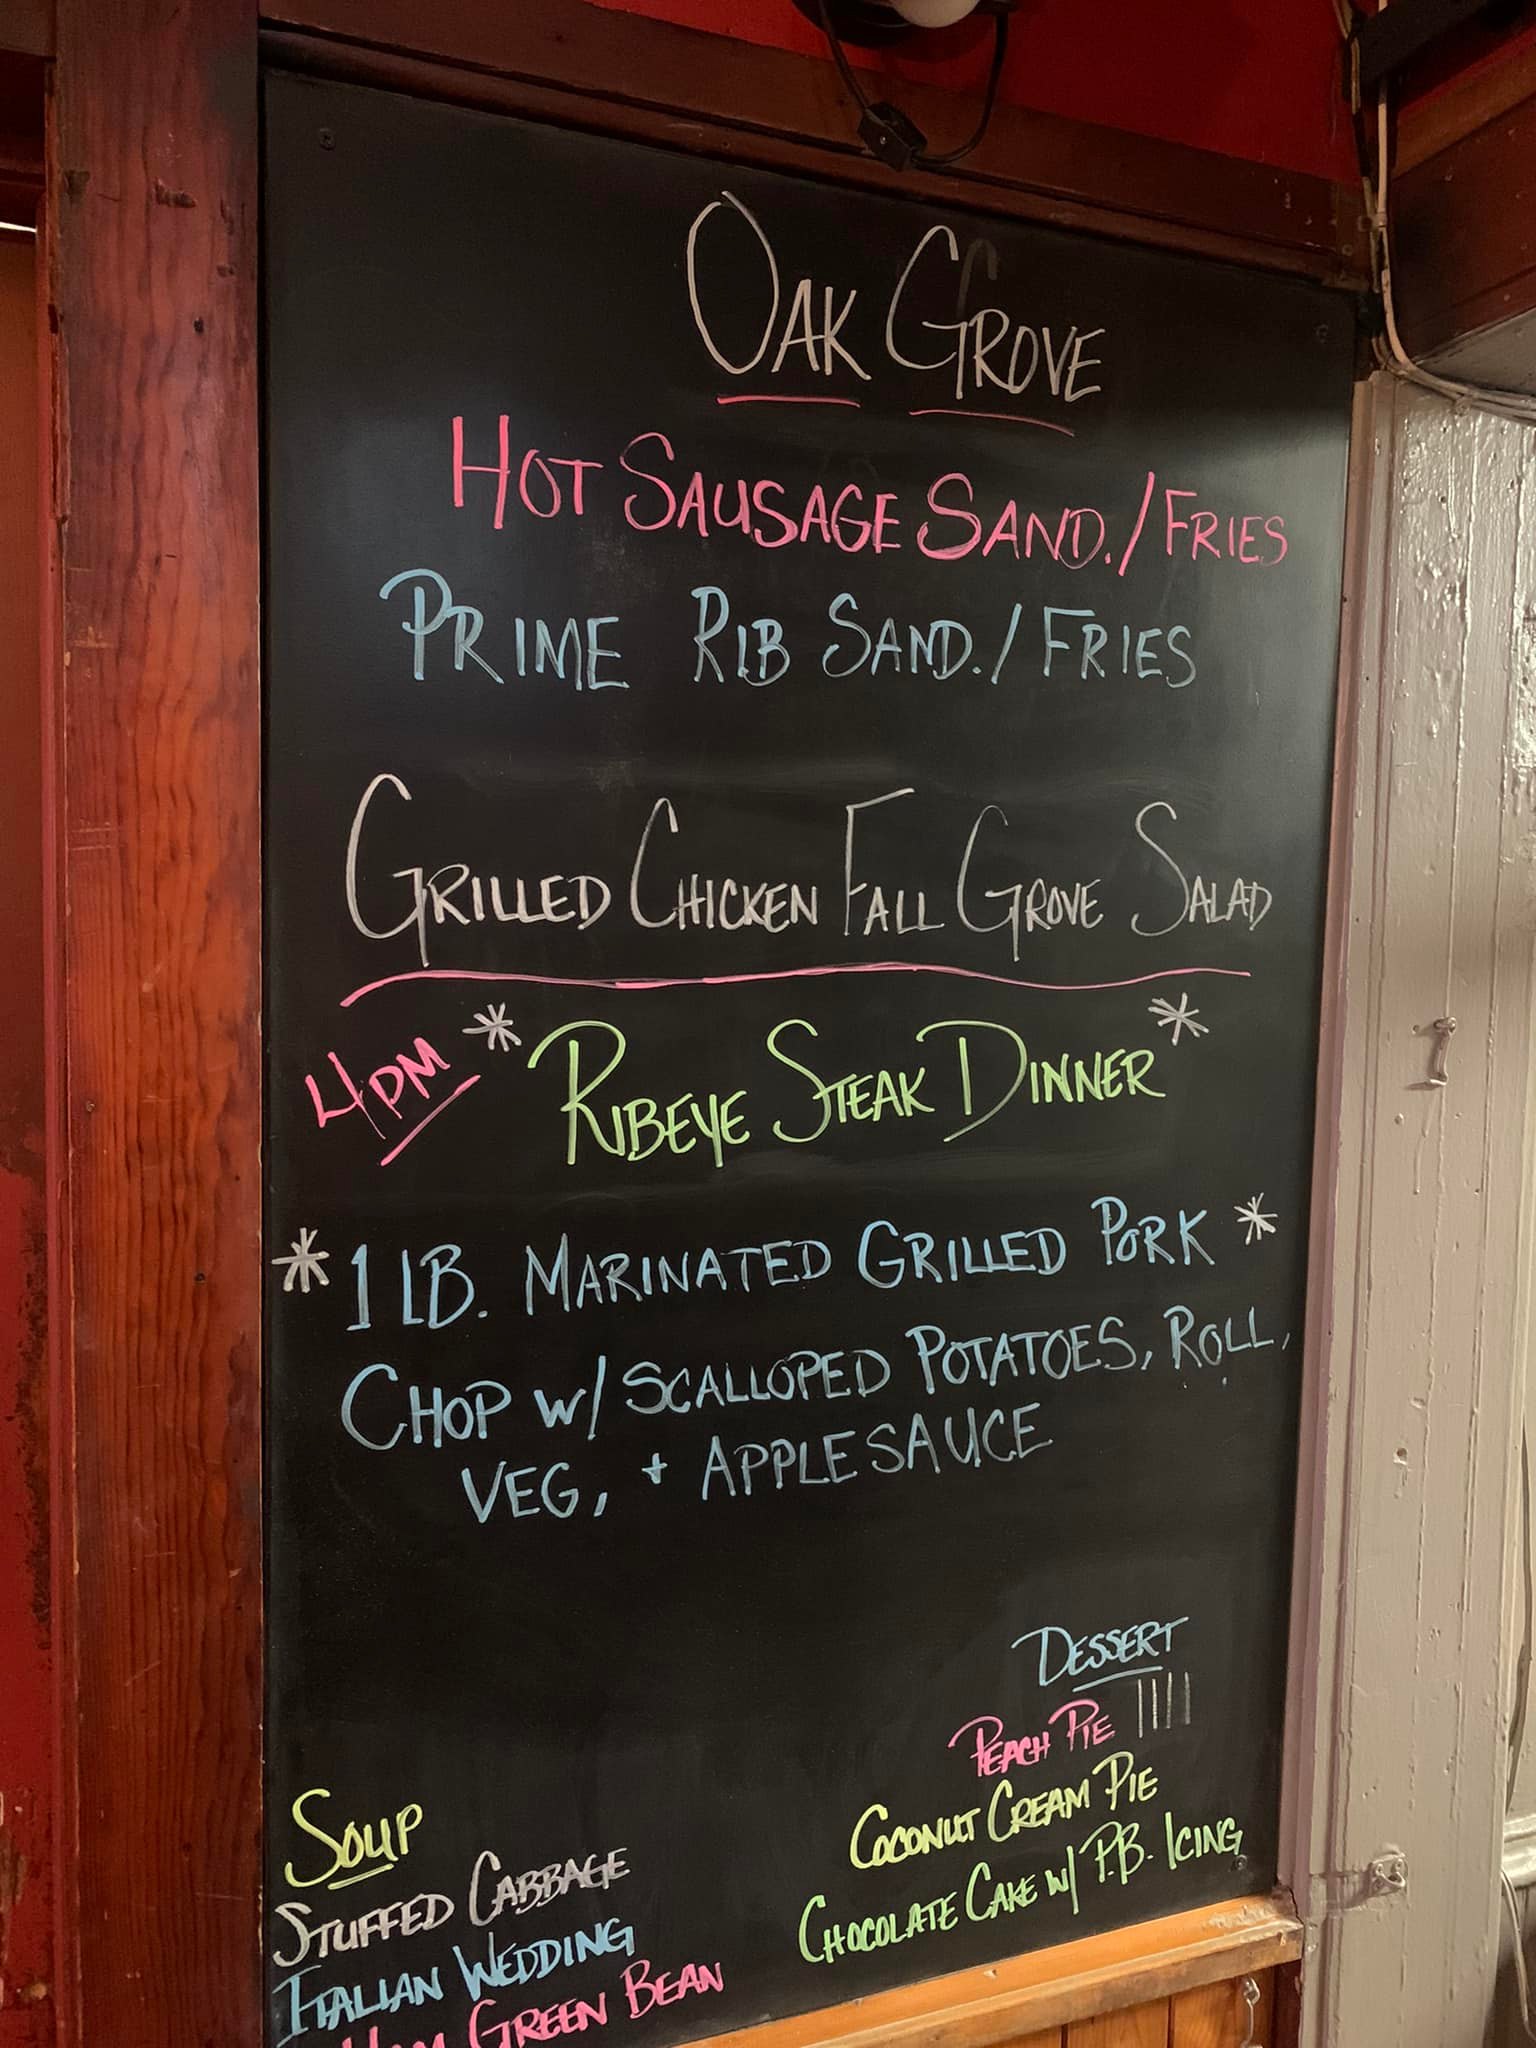 OAK GROVE
HOT SAUSAGE SAND./FRIES
PRIME RIB SAND./FRIES
GRILLED CHICKEN FALL GROVE SALAD
4PM * RIBEYE STEAK DINNER *
* 1 LB. MARINATED GRILLED PORK *
CHOP W/ SCALLOPED POTATOES, ROLL,
VEG, + APPLESAUCE
DESSERT
PEACH PIE ||||
COCONUT CREAM PIE
CHOCOLATE CAKE W/ P.B. ICING
SOUP
STUFFED CABBAGE
ITALIAN WEDDING
HAM GREEN BEAN